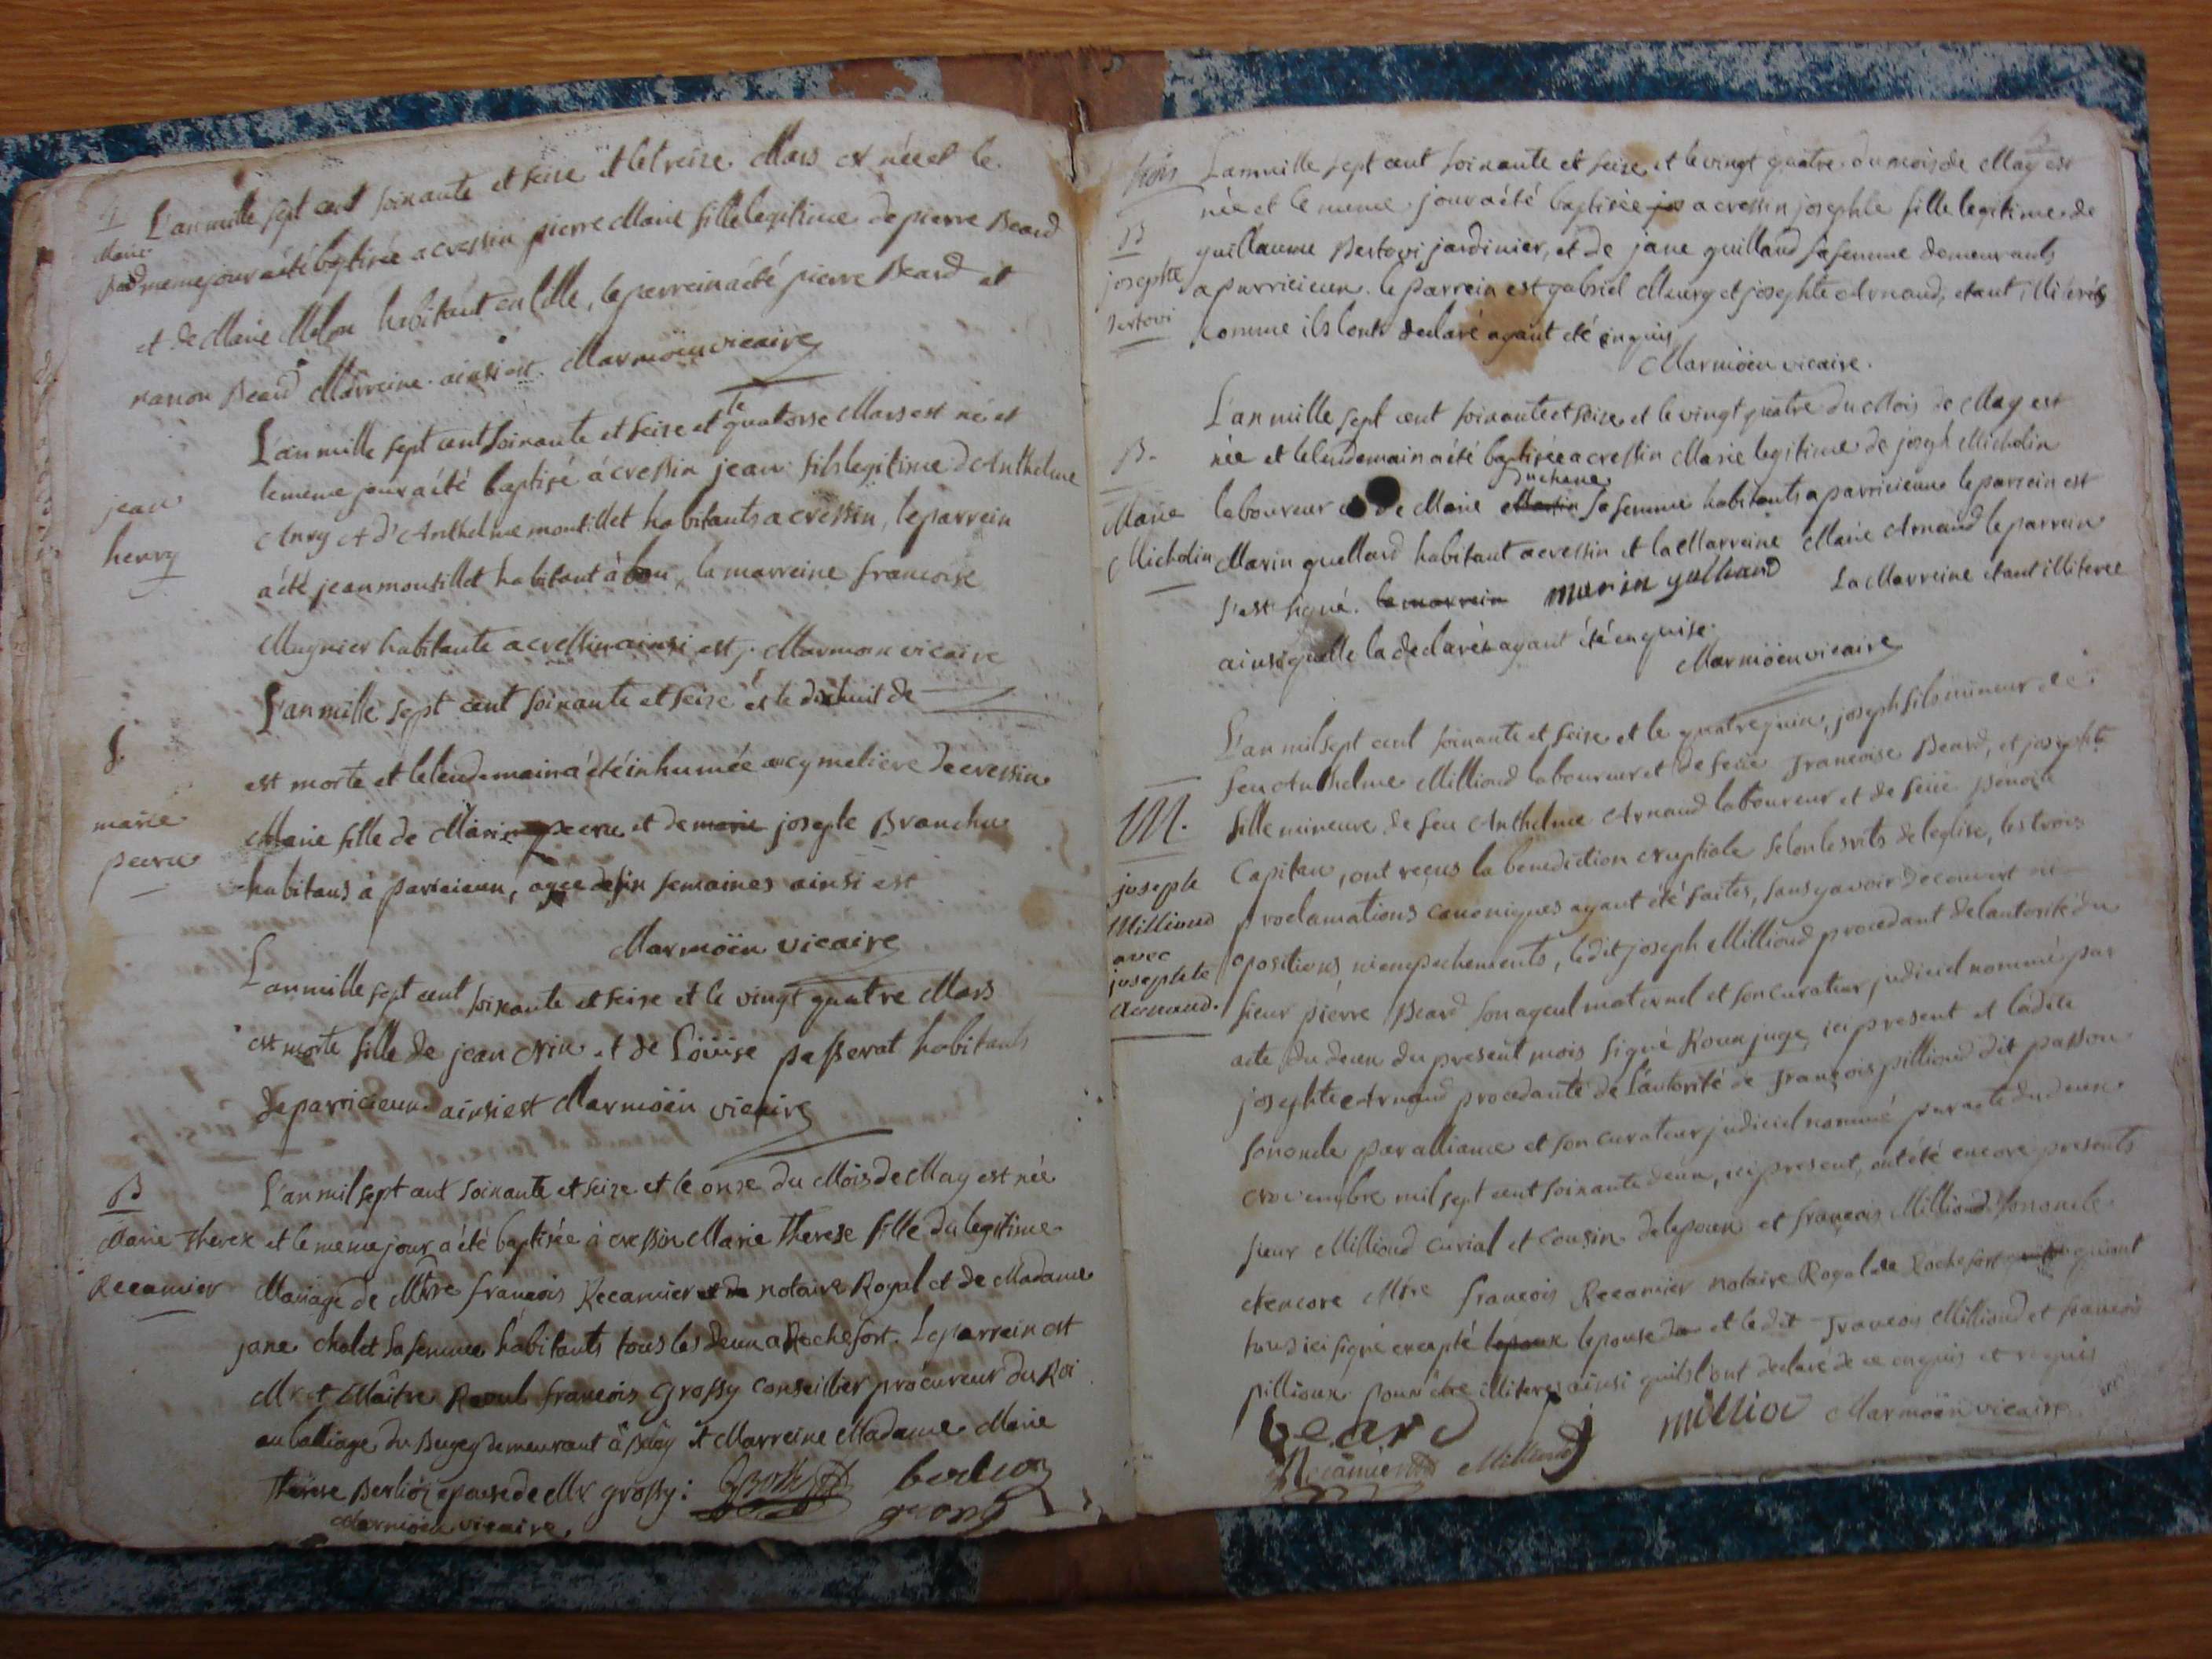 4
L'an mille sept cent soixante et seise et le treise Mars est née et le
Marie
Beard
meme jour a été baptisée a cressin pierre Marie fille legitime de pierre Beard
et de Marie Melon habitant en lille, le parrein a été pierre Beard et
nanon Beard Marreine. ainsi est. Marmöen vicaire
L'an mille sept cent soixante et seise et le quatorse Mars est né et
jean
henry
le meme jour a été baptisé à cressin jean fils legitime d'Anthelme
Anry et d'Anthelme montillet habitants a cressin, le parrein
a été jean montillet habitant à bon, la marreine francoise
Magnier habitante a cressin ainsi est j. Marmoen vicaire
L'an mille sept cent soixante et seise et le dixhuit de
S.
est morte et le lendemain a été inhumée au cymetiere de cressin
marie
pecru
Marie fille de Marin pecru et de marie josephe Branchu
habitans à paricieux, agee de six semaines ainsi est
Marmöen vicaire
L'an mille sept cent soixante et seise et le vingt quatre Mars
est morte fille de jean Nix et de Loüise passerat habitants
de parricieux. ainsi est Marmöen vicaire
B
L'an mil sept cent soixante et seize et le onze du Mois de May est née
Marie Therese
Recamier
et le meme jour a été baptisée à cressin Marie Therese fille du legitime
Mariage de Mtre francois Recamier et de notaire Royal et de Madame
jane cholet sa femme habitants tous les deux a Rochefort. Le parrain est
Mr et Maître Raoul francois Grossy conseillier procureur du Roi
au balliage du Bugey demeurant à Belley et Marreine Madame Marie
Therese Berlioz epouse de Mr grossy: Grossy berlioz
Marmöen vicaire. grossy
trois
L'an mille sept cent soixante et seise et le vingt quatre du mois de May est
B
josephte
Bertovi
née et le meme jour a été baptisée jos a cressin josephte fille legitime de
guillaume Bertovi jardinier, et de jane guilland sa femme demeurants
a parricieux. le parrein est gabriel Meurg et josephte Arnaud, etant illiterés
comme ils l'ont declaré ayant eté enquis
Marmöen vicaire.
L'an mille sept cent soixante et seise et le vingt quatre du Mois de May est
B.
née et le lendemain a été baptisée a cressin Marie legitime de joseph Micholin
Duchene
Marie
Micholin
laboureur et de Marie Martin sa femme habitants a parricieux le parrein est
Marin guelland habitant a cressin et la Marreine Marie Arnaud le parrein
s'est signé. la marrein marin gulliand La Marreine etant illiteree
ainsi quelle la declaré ayant été enquise.
Marmöen vicaire
L'an mil sept cent soixante et seise et le quatre juin, joseph fils mineur de
feu Anthelme Milliond laboureur et de feüe francoise Beard, et josephte
M.
joseph
Milliond
avec
josephte
Arnaud.
fille mineure de feu Anthelme Arnaud laboureur et de feüe Benoite
Capitan, ont reçus la benediction nuptiale selon les rits de l'eglise, les trois
proclamations canoniques ayant été faites, sans y avoir decouvert ni
opositions, ni empechements, ledit joseph Milliond procedant de l'autorité du
sieur pierre Beard son ayeul maternel et son curateur judiciel nommé par
acte du deux du present mois signé Roux juge, ici present et ladite
josephte Arnaud procedante de l'autorité de françois pilliond dit passon
son oncle par alliance et son curateur judiciel nommé par acte du deux
Novembre mil sept cent soixante deux, ici present, ont été encore presents
sieur Milliond curial et cousin de lepoux et françois Milliond son oncle
et encore Mtre francois Recamier notaire Royal de Rochefort qui ont
tous ici signé excepté lepoux lepouse et ledit francois Milliond et francois
pillioux pour etre illiteres ainsi quils l'ont declaré de ce enquis et requis
beard milliod Marmöen vicaire
Recamier Milliond